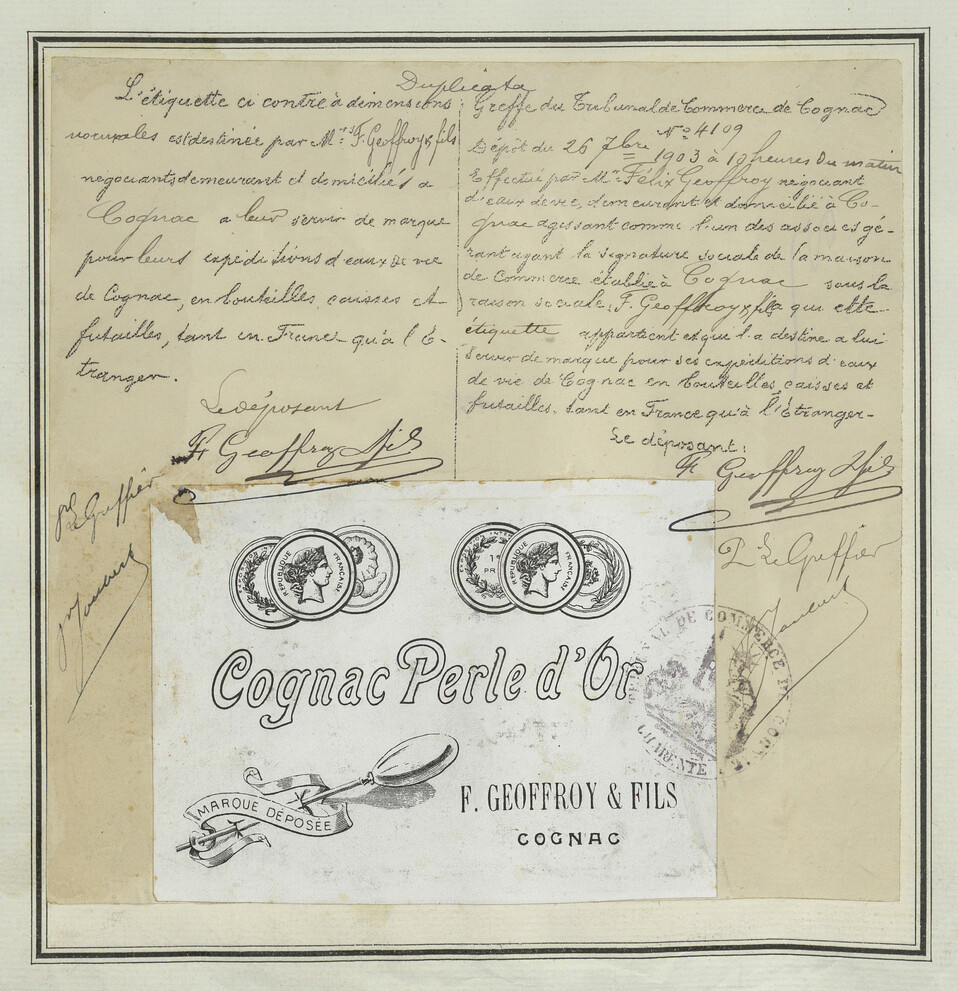 Duplicata
L'étiquette ci contre à dimensions
est destinée par M.rs F. Geoffroy & fils
négociants demeurant et domiciliés a
Cognac a leur servir de marque
pour leurs expéditions d'eaux de vie
de Cognac, en bouteilles caisses et
futailles, tant en France qu'à l'É-
tranger.
Le déposant
F. Geoffroy & fils
pr Le Greffier
Greffe du Tribunal de Commerce de Cognac
No 4109
Dépôt du 26 7bre 1903 à 10 heures Du matin
Effectué par Mr Félix Geoffroy négociant
d'eaux de vie, demeurant et domicilié à Co-
gnac agissant comme l'un des associés gé-
rant ayant la signature sociale de la maison
de Commerce établie à Cognac sous la
raison sociale: F. Geoffroy & fils qui cette
étiquette appartient et qu'il a destine a lui
servir de marque pour ses expéditions d'eaux
de vie de Cognac en bouteilles, caisses et
futailles, tant en France qu'à l'Étranger-
Le déposant:
F. Geoffroy & fils
P. Le Greffier
RÉPUBLIQUE FRANÇAISE
RÉPUBLIQUE FRANÇAISE
Cognac Perle d'Or
MARQUE DÉPOSÉE
F. GEOFFROY & FILS
COGNAC
TRIBUNAL DE COMMERCE DE COGNAC
CHARENTE